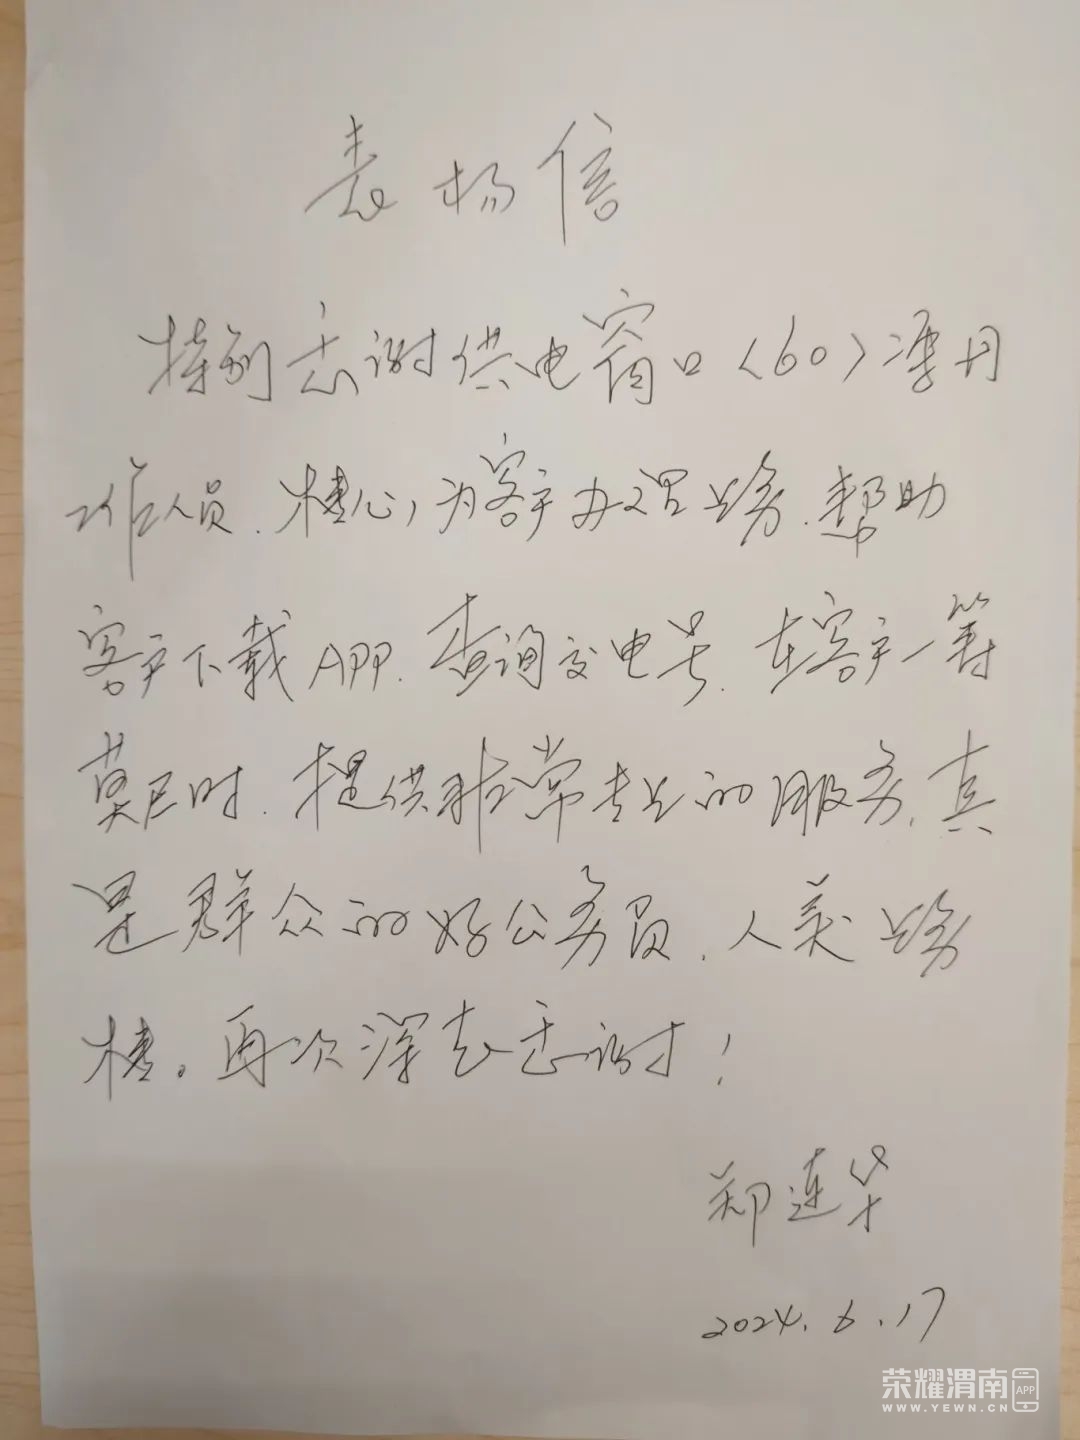 表扬信
特别感谢供电窗口（60）潭月
工作人员.精心,为客户办理业务.帮助
客户下载APP.查询交电号.在客户一筹
莫展时.提供非常专业的服务,真
是群众的好公务员.人美业务
精。再次深表感谢!
郑连华
2024.6.17
荣耀渭南APP
WWW.YEWN.CN